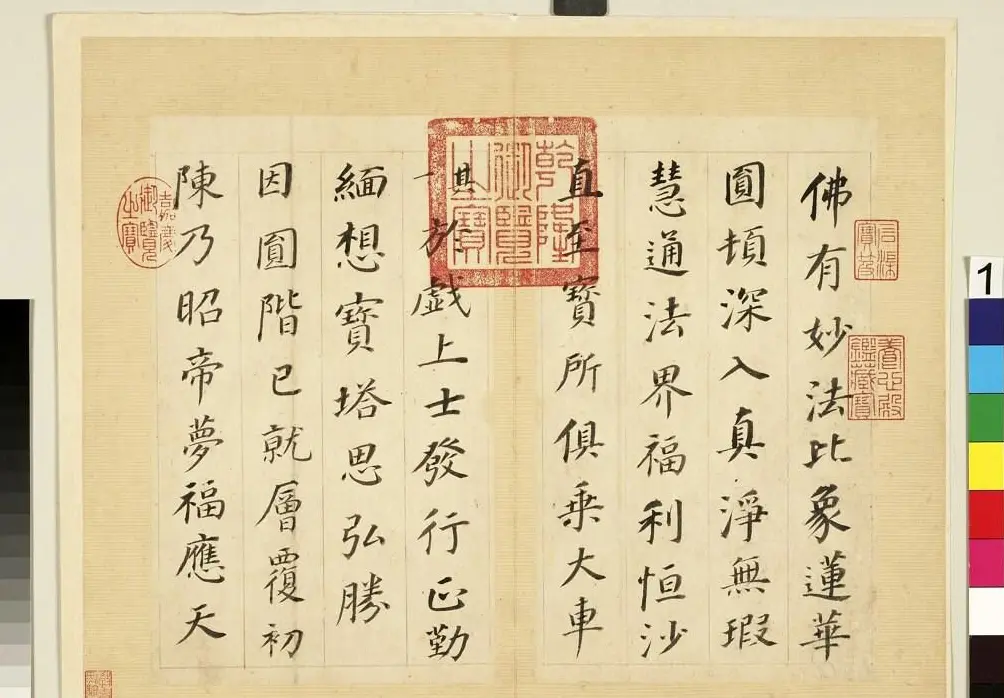 佛有妙法比象蓮華
圓頓深入真淨無瑕
慧通法界福利恒沙
直至寶所俱乗大車
其一於戲上士發行正勤
緬想寶塔思弘勝
因圓階已就層覆初
陳乃昭帝夢福應天
石渠寶笈
養心殿鑑藏寶
乾隆御覽之寶
嘉慶御覽之寶
1